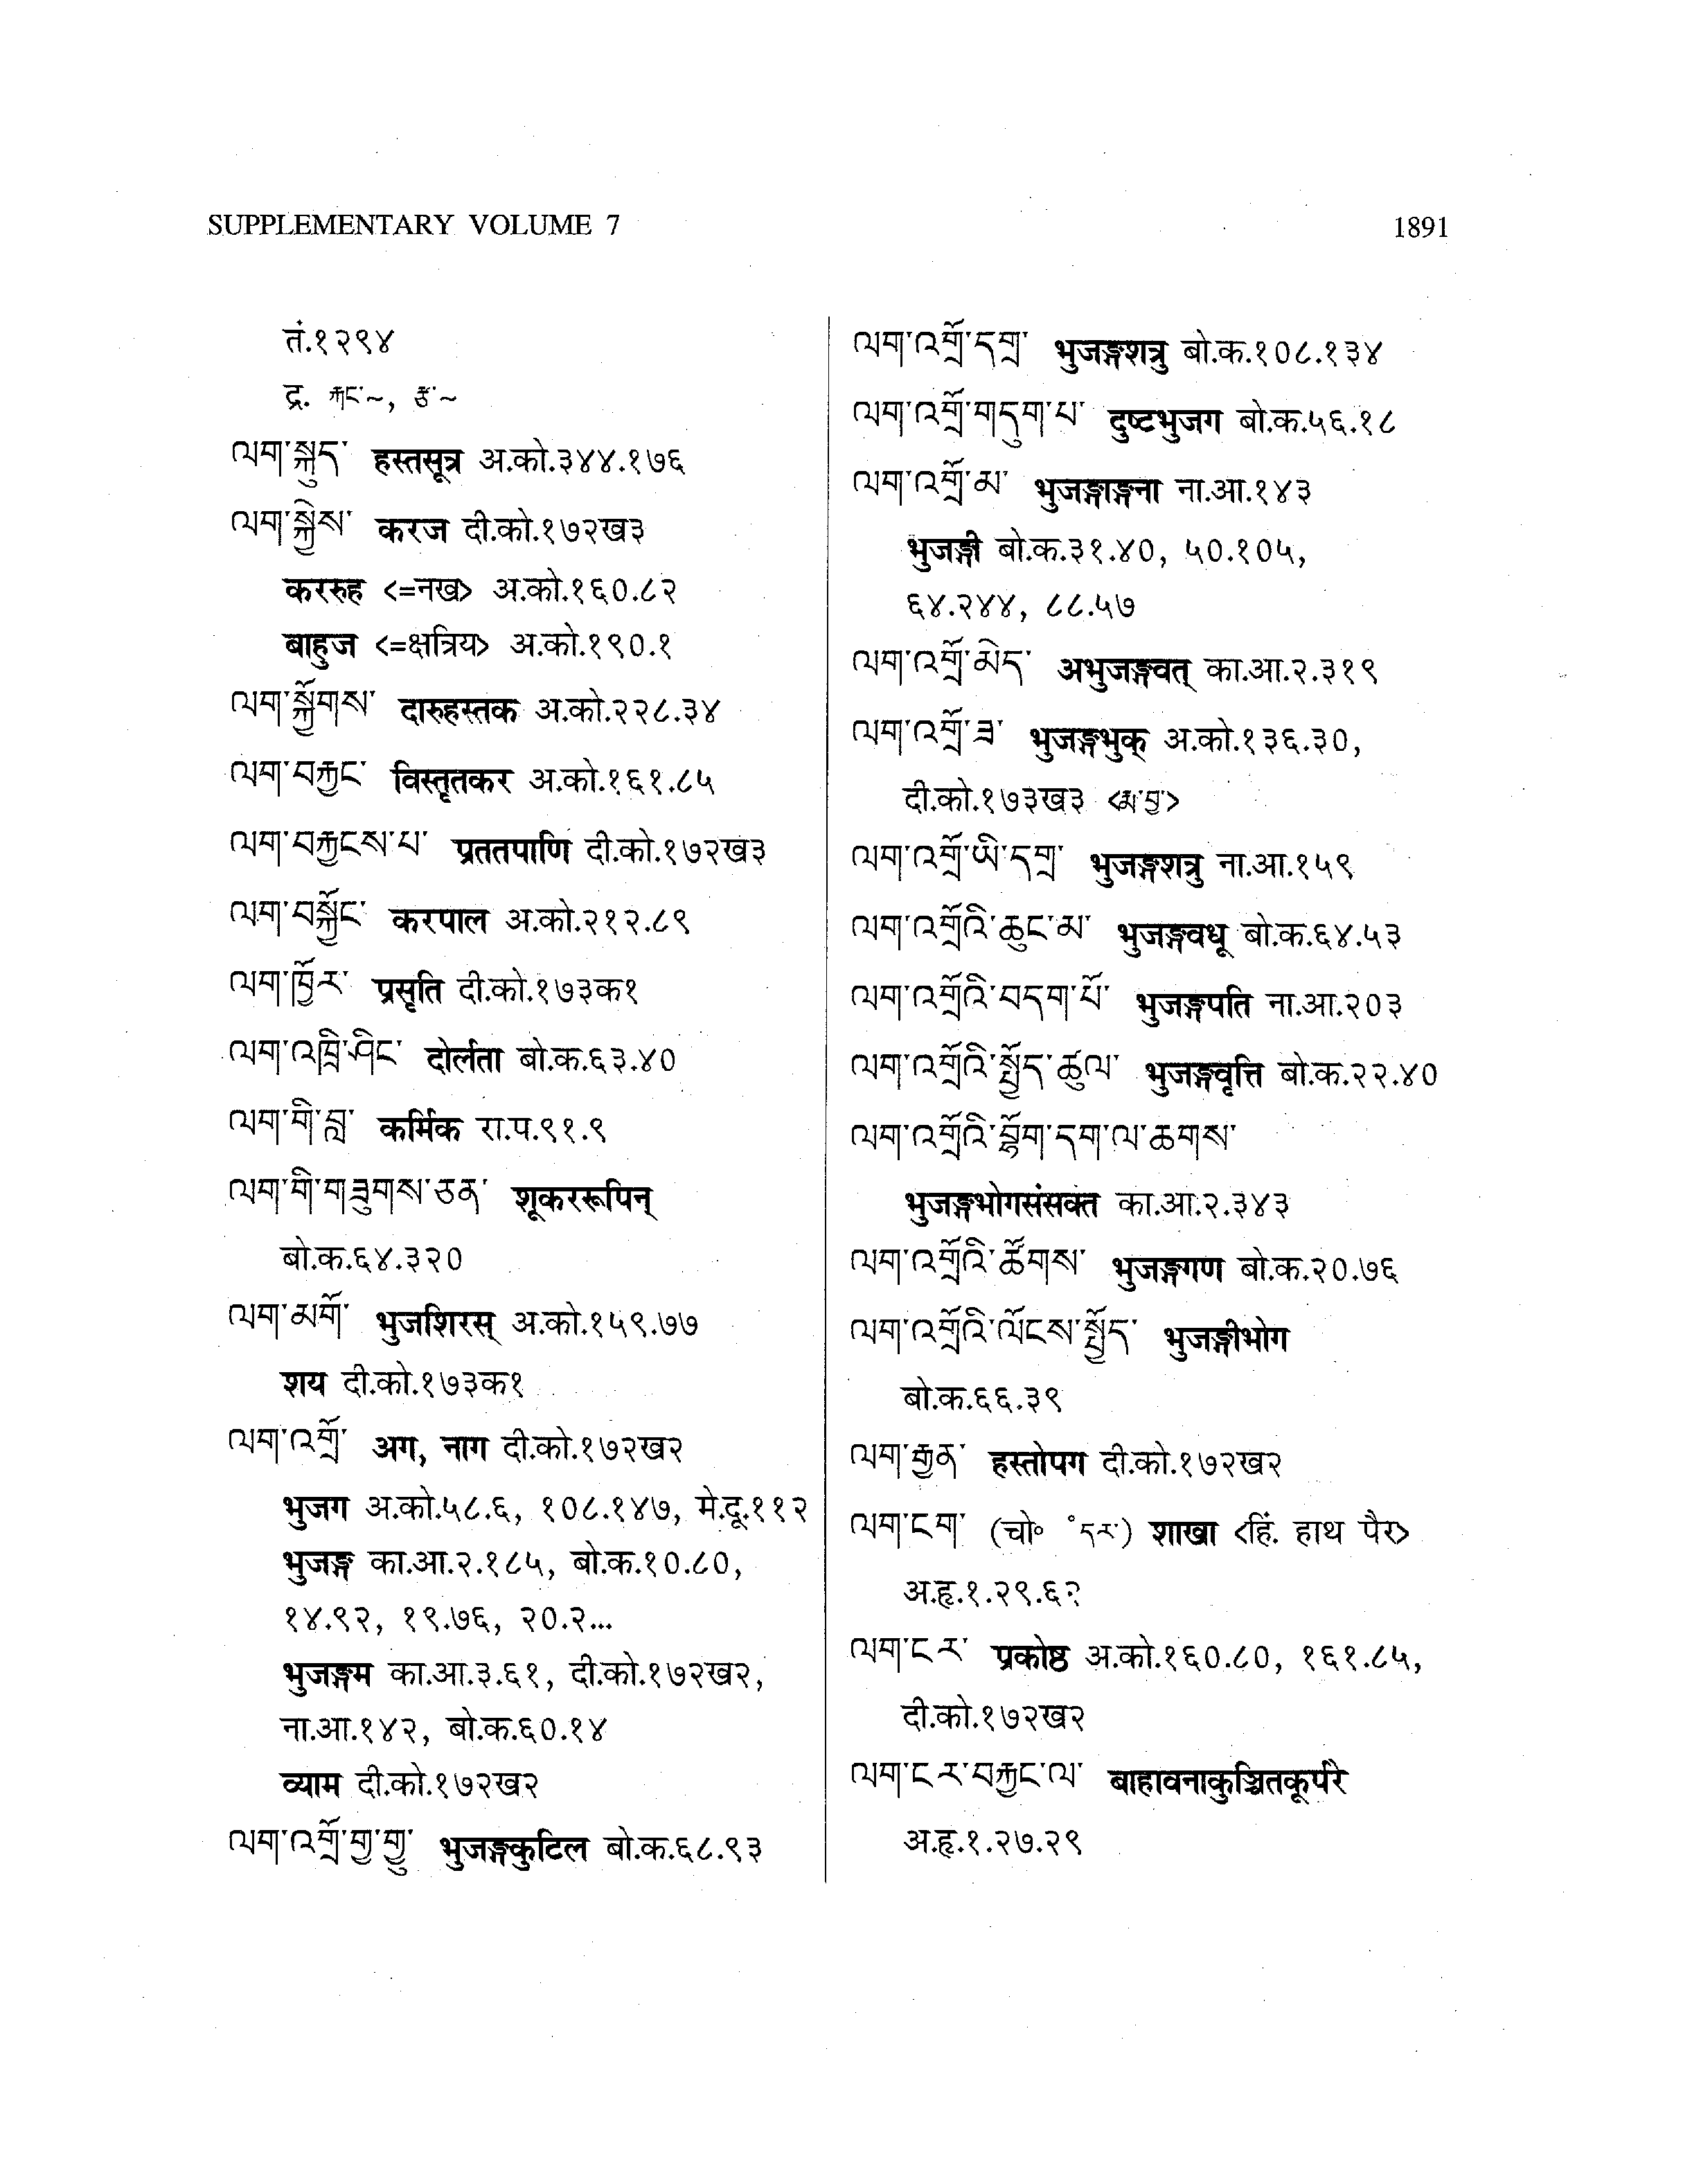 SUPPLEMENTARY VOLUME 7
1891
तं.१२९४
द्र. རྐང་~, རྩ་~
ལག་སྐུད་ हस्तसूत्र अ.को.३४४.१७६
ལག་སྐྱེས་ करज दी.को.१७२ख३
कररुह <=नख> अ.को.१६०.८२
बाहुज <=क्षत्रिय> अ.को.१९०.१
ལག་སྐྱོགས་ दारुहस्तक अ.को.२२८.३४
ལག་བརྐྱང་ विस्तृतकर अ.को.१६१.८५
ལག་བརྐྱངས་པ་ प्रततपाणि दी.को.१७२ख३
ལག་བསྐྱོང་ करपाल अ.को.२१२.८९
ལག་ཁྱོར་ प्रसृति दी.को.१७३क१
ལག་འཁྲི་ཤིང་ दोर्लता बो.क.६३.४०
ལག་གི་བླ་ कर्मिक रा.प.९१.९
ལག་གི་གཟུགས་ཅན་ शूकररूपिन्
बो.क.६४.३२०
ལག་མགོ་ भुजशिरस् अ.को.१५९.७७
शय दी.को.१७३क१
ལག་འགྲོ་ अग, नाग दी.को.१७२ख२
भुजग अ.को.५८.६, १०८.१४७, मे.दू.११२
भुजङ्ग का.आ.२.१८५, बो.क.१०.८०,
१४.९२, १९.७६, २०.२...
भुजङ्गम का.आ.३.६१, दी.को.१७२ख२,
ना.आ.१४२, बो.क.६०.१४
व्याम दी.को.१७२ख२
ལག་འགྲོ་གྱ་གྱུ་ भुजङ्गकुटिल बो.क.६८.९३
ལག་འགྲོ་དགྲ་ भुजङ्गशत्रु बो.क.१०८.१३४
ལག་འགྲོ་གདུག་པ་ दुष्टभुजग बो.क.५६.१८
ལག་འགྲོ་མ་ भुजङ्गाङ्गना ना.आ.१४३
भुजङ्गी बो.क.३१.४०, ५०.१०५,
६४.२४४, ८८.५७
ལག་འགྲོ་མེད་ अभुजङ्गवत् का.आ.२.३१९
ལག་འགྲོ་ཟ་ भुजङ्गभुक् अ.को.१३६.३०,
दी.को.१७३ख३ <རྨ་བྱ>
ལག་འགྲོ་ཡི་དགྲ་ भुजङ्गशत्रु ना.आ.१५९
ལག་འགྲོའི་ཆུང་མ་ भुजङ्गवधू बो.क.६४.५३
ལག་འགྲོའི་བདག་པོ་ भुजङ्गपति ना.आ.२०३
ལག་འགྲོའི་སྤྱོད་ཚུལ་ भुजङ्गवृत्ति बो.क.२२.४०
ལག་འགྲོའི་བློག་དག་ལ་ཆགས་
भुजङ्गभोगसंसक्त का.आ.२.३४३
ལག་འགྲོའི་ཚོགས་ भुजङ्गगण बो.क.२०.७६
ལག་འགྲོའི་ལོངས་སྤྱོད་ भुजङ्गीभोग
बो.क.६६.३९
ལག་རྒྱན་ हस्तोपग दी.को.१७२ख२
ལག་ངག་ (चो॰ ॰དར་) शाखा <हिं. हाथ पैर>
अ.हृ.१.२९.६?
ལག་ངར་ प्रकोष्ठ अ.को.१६०.८०, १६१.८५,
दी.को.१७२ख२
ལག་ངར་བརྐྱང་ལ་ बाहावनाकुञ्चितकूर्परे
अ.हृ.१.२७.२९